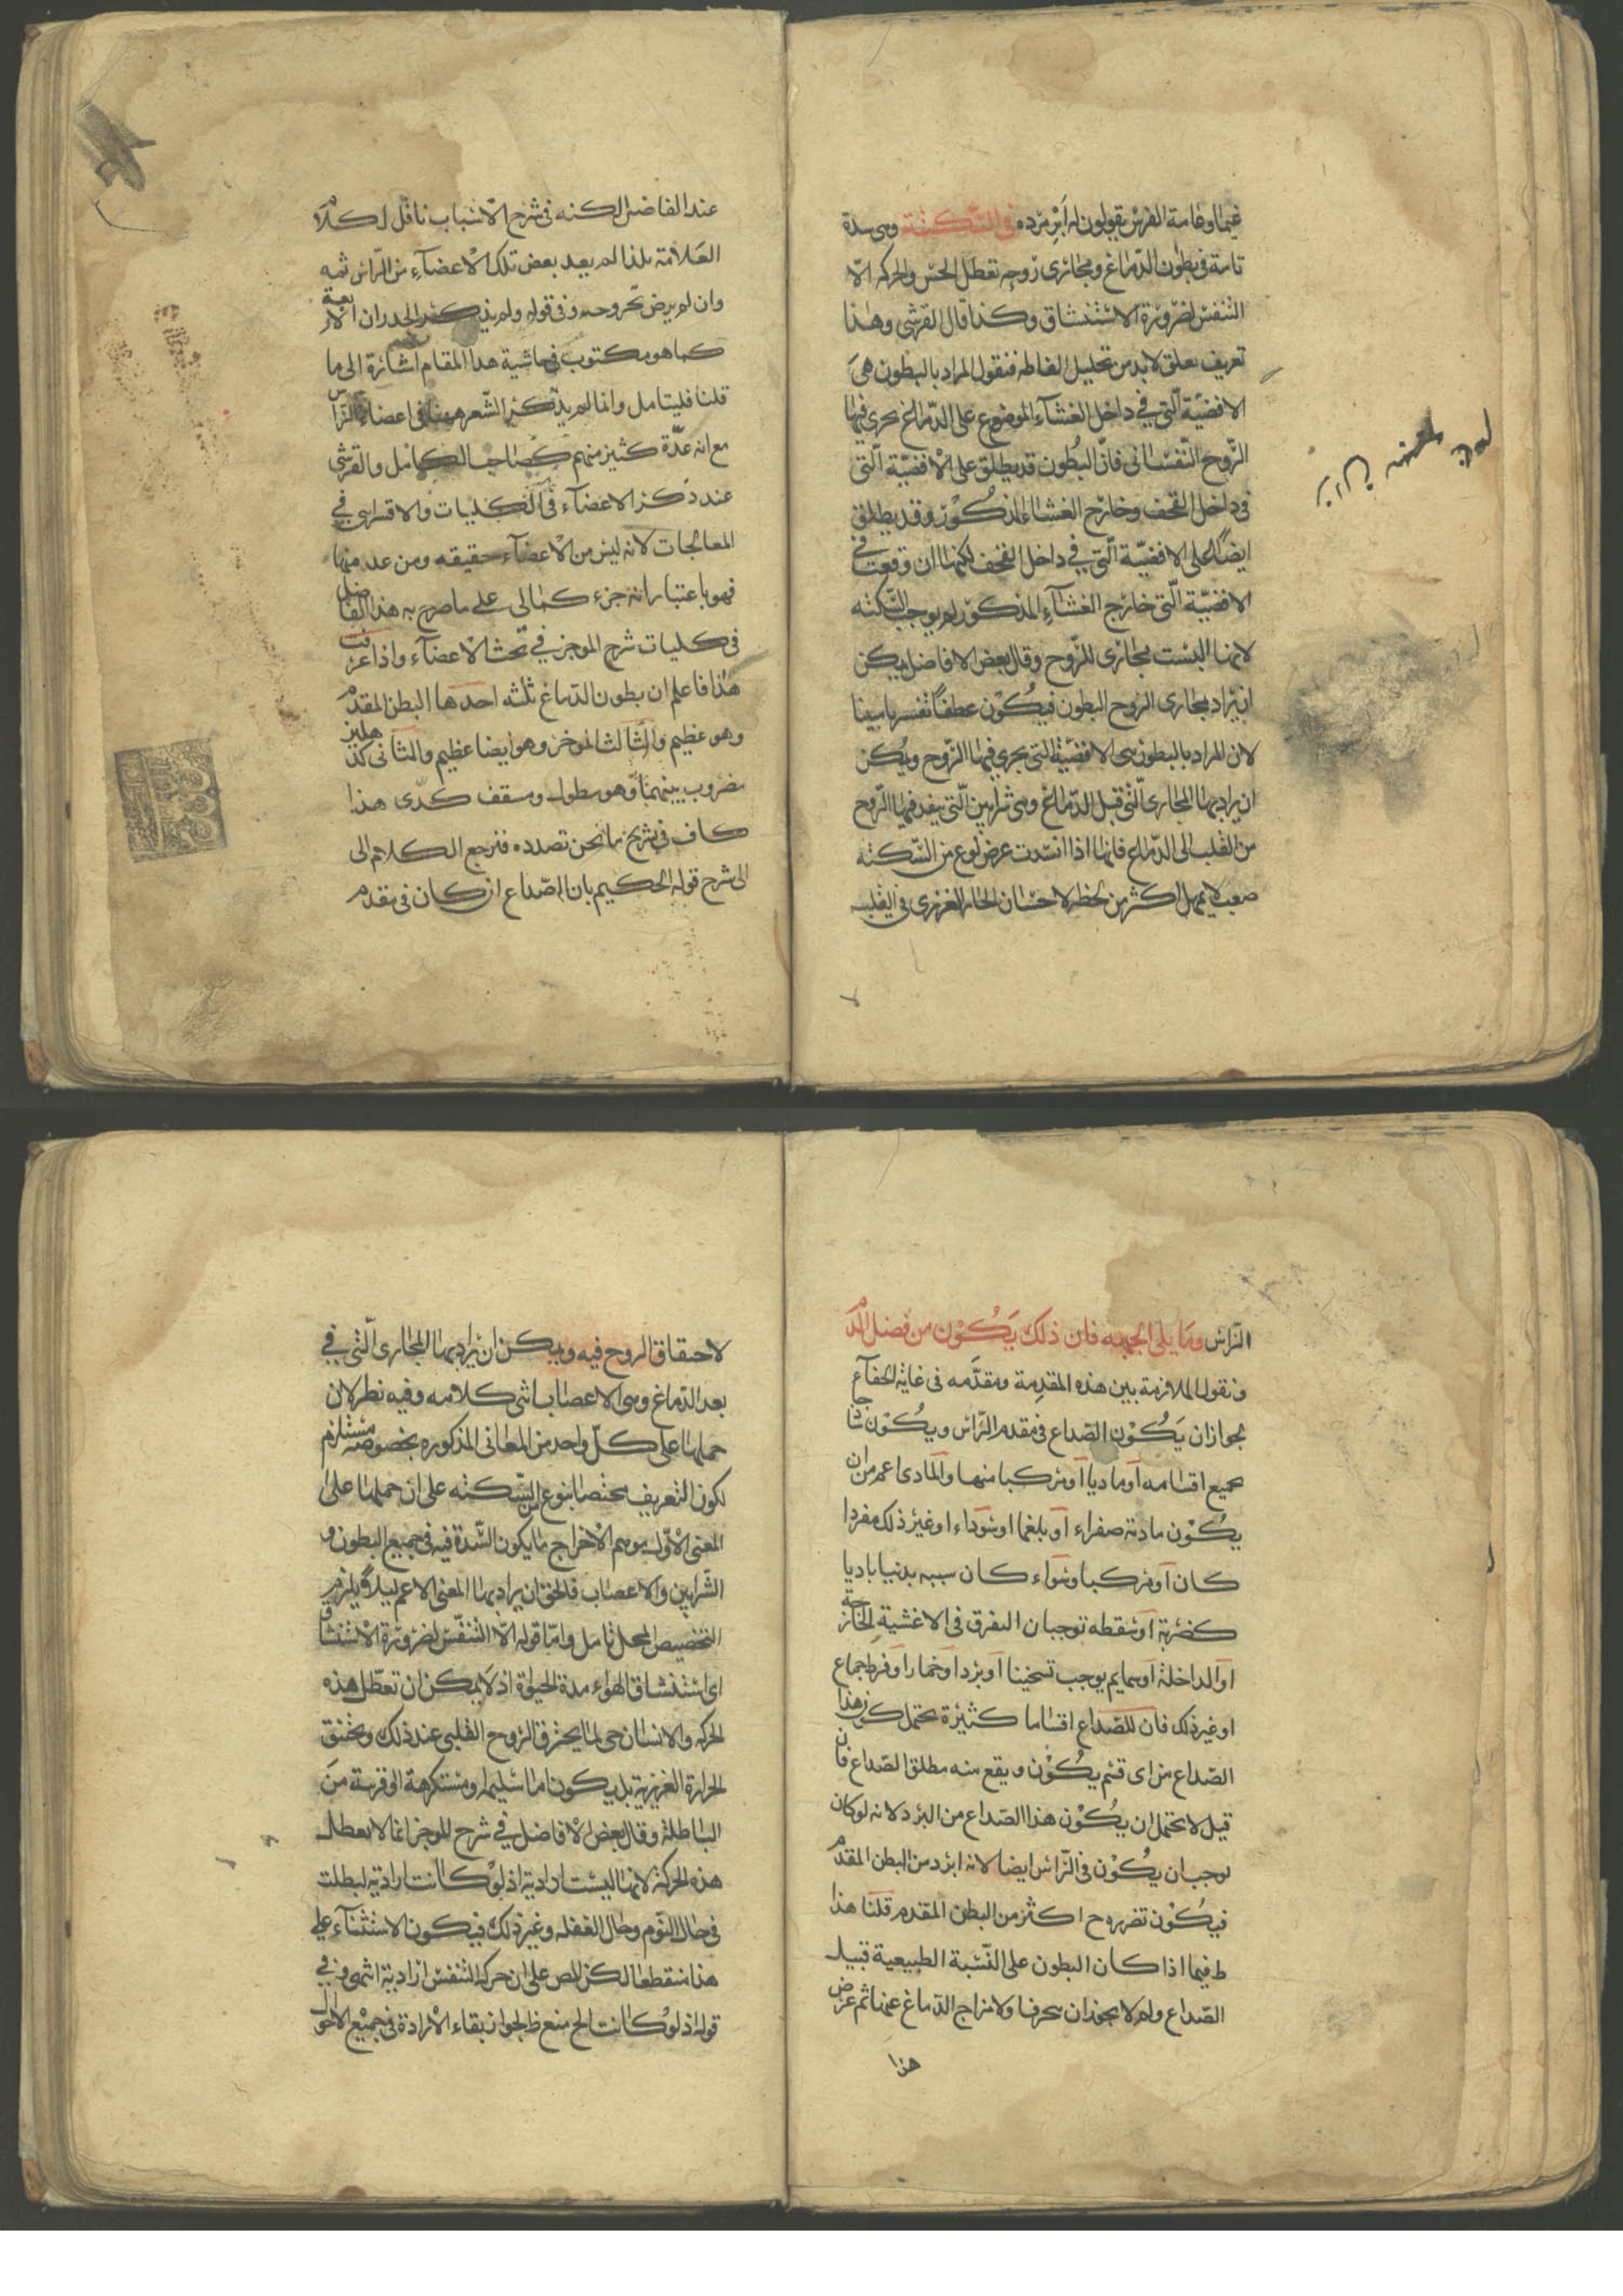 غيما وعامة الفرس يقولون له ابر مرده في السكتة وهى سدة
تامة في بطون الدماغ ومجارى روحه تعطل الحس والحركه الا
التنفس لضرورة الاستنشاق وكذا قال القرشى وهذا
تعريف لابد من تحليل الفاظه فنقول المراد بالبطون هى
الافضية التى في داخل الغشاء الموضوع على الدماغ يجرى فيها
الروح النفسانى فان البطون قد يطلق على الافضية التى
فى داخل القحف وخارج الغشاء المذكور وقد يطلق
ايضا على الافضية التى في داخل القحف لكنها ان وقعت فى
الافضية التى خارج الغشاء المذكور لم يوجب السكته
لانها ليست بمجارى للروح وقال بعض الافاضل يمكن
ان يراد بمجارى الروح البطون فيكون عطفا تفسيريا مبينا
لان المراد بالبطون هى الافضية التى يجرى فيها الروح ويمكن
ان يراد بها المجارى التى قبل الدماغ وهى شرايين التى ينفد فيها الروح
من القلب الى الدماغ فانها اذا انسدت عرض نوع من السكته
صعب لا يمهل اكثر من لحظه لاحتقان الحار الغريزى فى القلب
عند الفاضل لكنه فى شرح الاسباب ناقل لكلام
العلامة بلذا لم يعد بعض تلك الاعضاء من الراس ثمه
وان لم يرض وفى قوله ولم يذكر الجدران الاربعة
كما هو مكتوب فى حاشية هذا المقام اشارة الى ما
قلنا فليتامل وانما لم يذكر الشعر ههنا فى اعضاء الراس
مع انه عدة كثير منهم كصاحب الكامل والقرشى
عند ذكر الاعضاء فى الكليات والاقسرائى في
المعالجات لانه ليس من الاعضاء حقيقه ومن عد منها
فهو باعتبار انه جزء كمالى على ما صرح به هذا الفاضل
فى كليات شرح الموجز في بحث الاعضاء واذا عرفت
هذا فاعلم ان بطون الدماغ ثلثه احدها البطن المقدم
وهو عظيم والثالث الموخر وهو ايضا عظيم والثانى كدهليز
مضروب بينهما وهو مطول ومسقف كدى هذا
كاف في تشريح ما نحن تصدده فنرجع الكلام الى
الى شرح قوله الحكيم بان الصداع ان كان فى مقدم
الراس وما يلى الجبهه فان ذلك يكون من فضل الدم
ونقول الملازمة بين هذه المقدمة ومقدمه فى غاية الخفاء
بجواز ان يكون الصداع فى مقدم الراس ويكون
بجميع اقسامه او ماديا او مركبا منها والمادى اعم من ان
يكون مادته صفراء او بلغما او سوداء او غير ذلك مفردا
كان او مركبا وسواء كان سببه بدنيا باديا
كضربة او سقطه توجبان التفرق فى الاغشية الخارجة
او الداخلة او سمايم يوجب تسخينا او بردا او خمارا او فرط جماع
او غير ذلك فان للصداع اقساما كثيرة يحتمل كون هذا
الصداع من اى قسم يكون ويقع منه مطلق الصداع فان
قيل لا يحتمل ان يكون هذا الصداع من البرد لانه لو كان
لوجب ان يكون فى الراس ايضا لانه ابرد من البطن المقدم
فيكون تضرره ح اكثر من البطن المقدم قلنا هذا
ط فيما اذا كان البطون على النسبة الطبيعية قبيل
الصداع ولم لا يجوز ان ينحرف اولا مزاج الدماغ عنها ثم عرض
هذا
لاحتقان الروح فيه ويمكن ان يراد بها المجارى التى في
بعد الدماغ وهى الاعصاب انتهى كلامه وفيه نظر لان
حملها على كل واحد من المعانى المذكوره بخصوصه مستلزم
لكون التعريف مختصا بنوع من السكته على ان حملها على
المعنى الاول يوهم الاخراج ما يكون السدة فيه فى جميع البطون و
الشرايين والاعصاب فالحق ان يراد بها المعنى الاعم ليلا يلزم
التخصيص المحل تامل واما قوله الا التنفس لضرورة الاستنشاق
اى استنشاق الهواء مدة الحيوة اذ لا يمكن ان تعطل هذه
الحركه والانسان حى لما يحترق الروح القلبى عند ذلك ويختنق
الحرارة الغريزية بل يكون اما سليما او مستكرهة او قريبة من
الباطلة وقال بعض الافاضل في شرح الموجز انما لا يعطل
هذه الحركة لانها ليست ارادية اذ لو كانت ارادية لبطلت
فى حال النوم وحال الغفله وغير ذلك فيكون الاستثناء على
هذا منقطعا لكن نص على ان حركة التنفس ارادية انتهى وفى
قوله اذ لو كانت الخ منع ظ لجواز بقاء الارادة فى جميع الاحوال